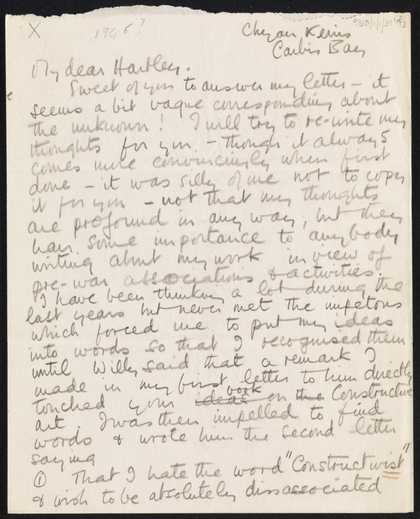 X
1946?
Chy an Kerris
Carbis Bay
My dear Hartley.
Sweet of you to answer my letter – it
seems a bit vague corresponding about
the unknown! I will try to re-write my
thoughts for you – though it always
comes more convincingly when first
done – it was silly of me not to copy
it for you – not that my thoughts
are profound in any way, but they
have some importance to anybody
writing about my work in view of
pre-war associations & activities.
I have been thinking a lot during the
last years but never met the impetous
which forced me to put my ideas
into words so that I recognised them
until Willy said that a remark I
made in my first letter to him directly
touched your ideas work on the Constructive
art. I was then impelled to find
words & wrote him the second letter
saying
① That I hate the word "Constructivist"
& wish to be absolutely dissasociated